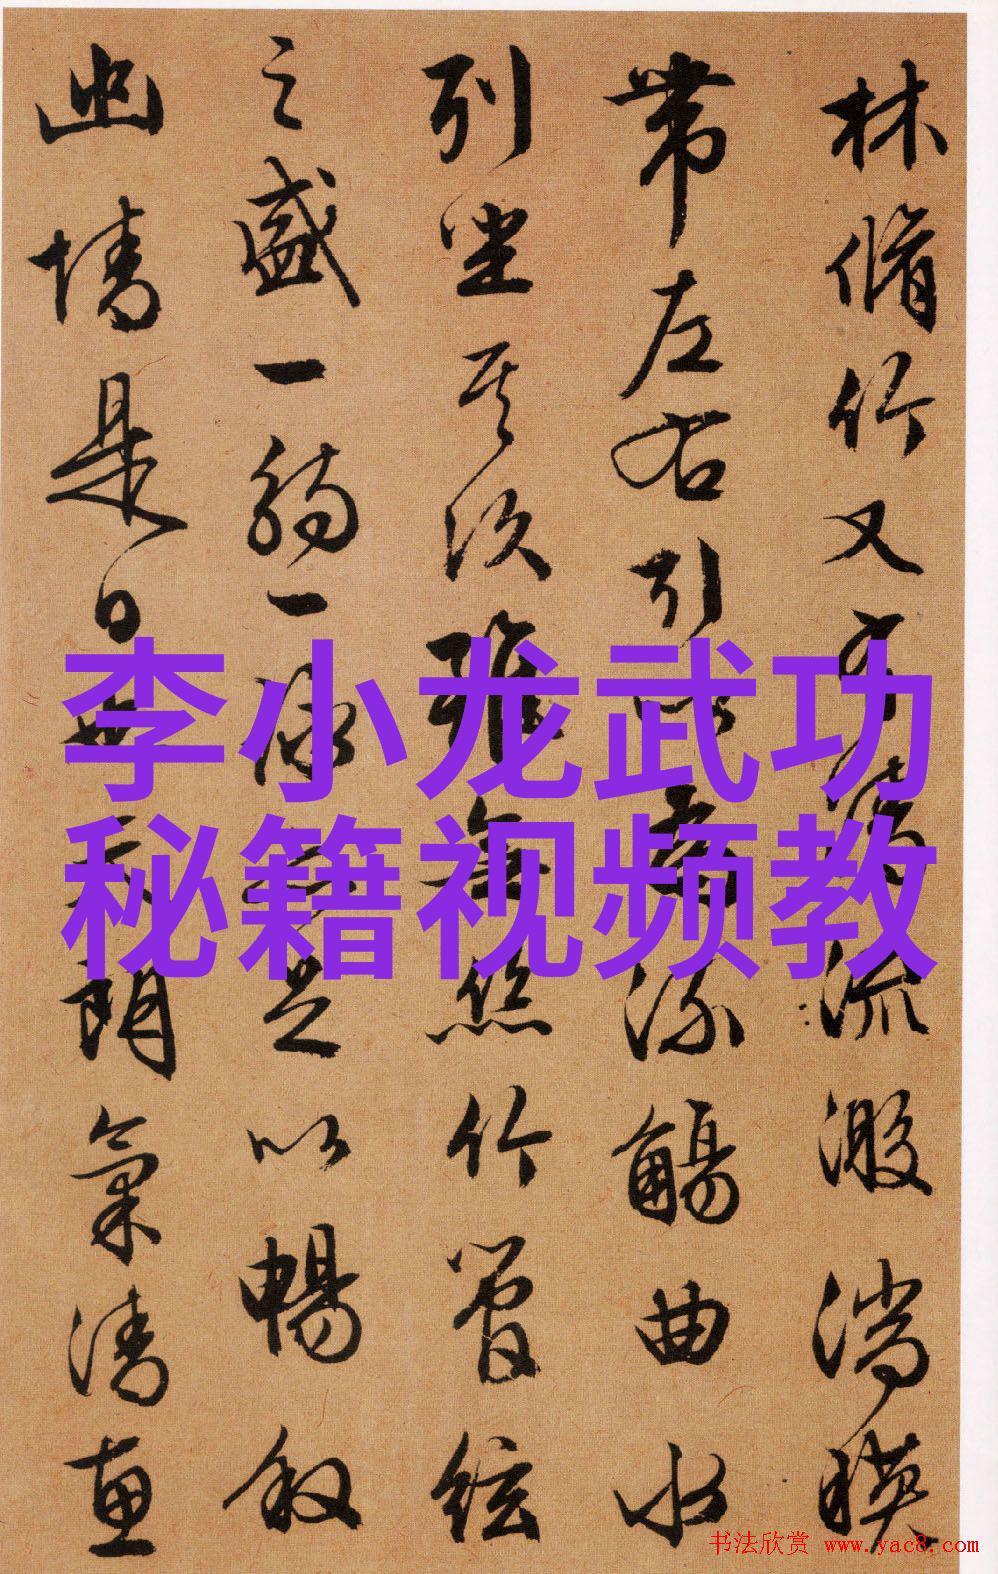 林脩竹又有清流激湍暎
帶左右引以為流觴曲水
列坐其次雖無絲竹管絃
之盛一觴一詠亦足以暢叙
幽情是日也天朗氣清惠
李小龙武功
秘籍视频教
书法欣赏 www.yac8.com